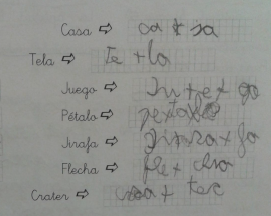 Casa ⇨ ca + sa
Tela ⇨ te + la
Juego ⇨ Ju + e + go
Pétalo ⇨ pe + ta
Jirafa ⇨ Ji + ra + fa
Flecha ⇨ fle + cha
Crater ⇨ cra + ter